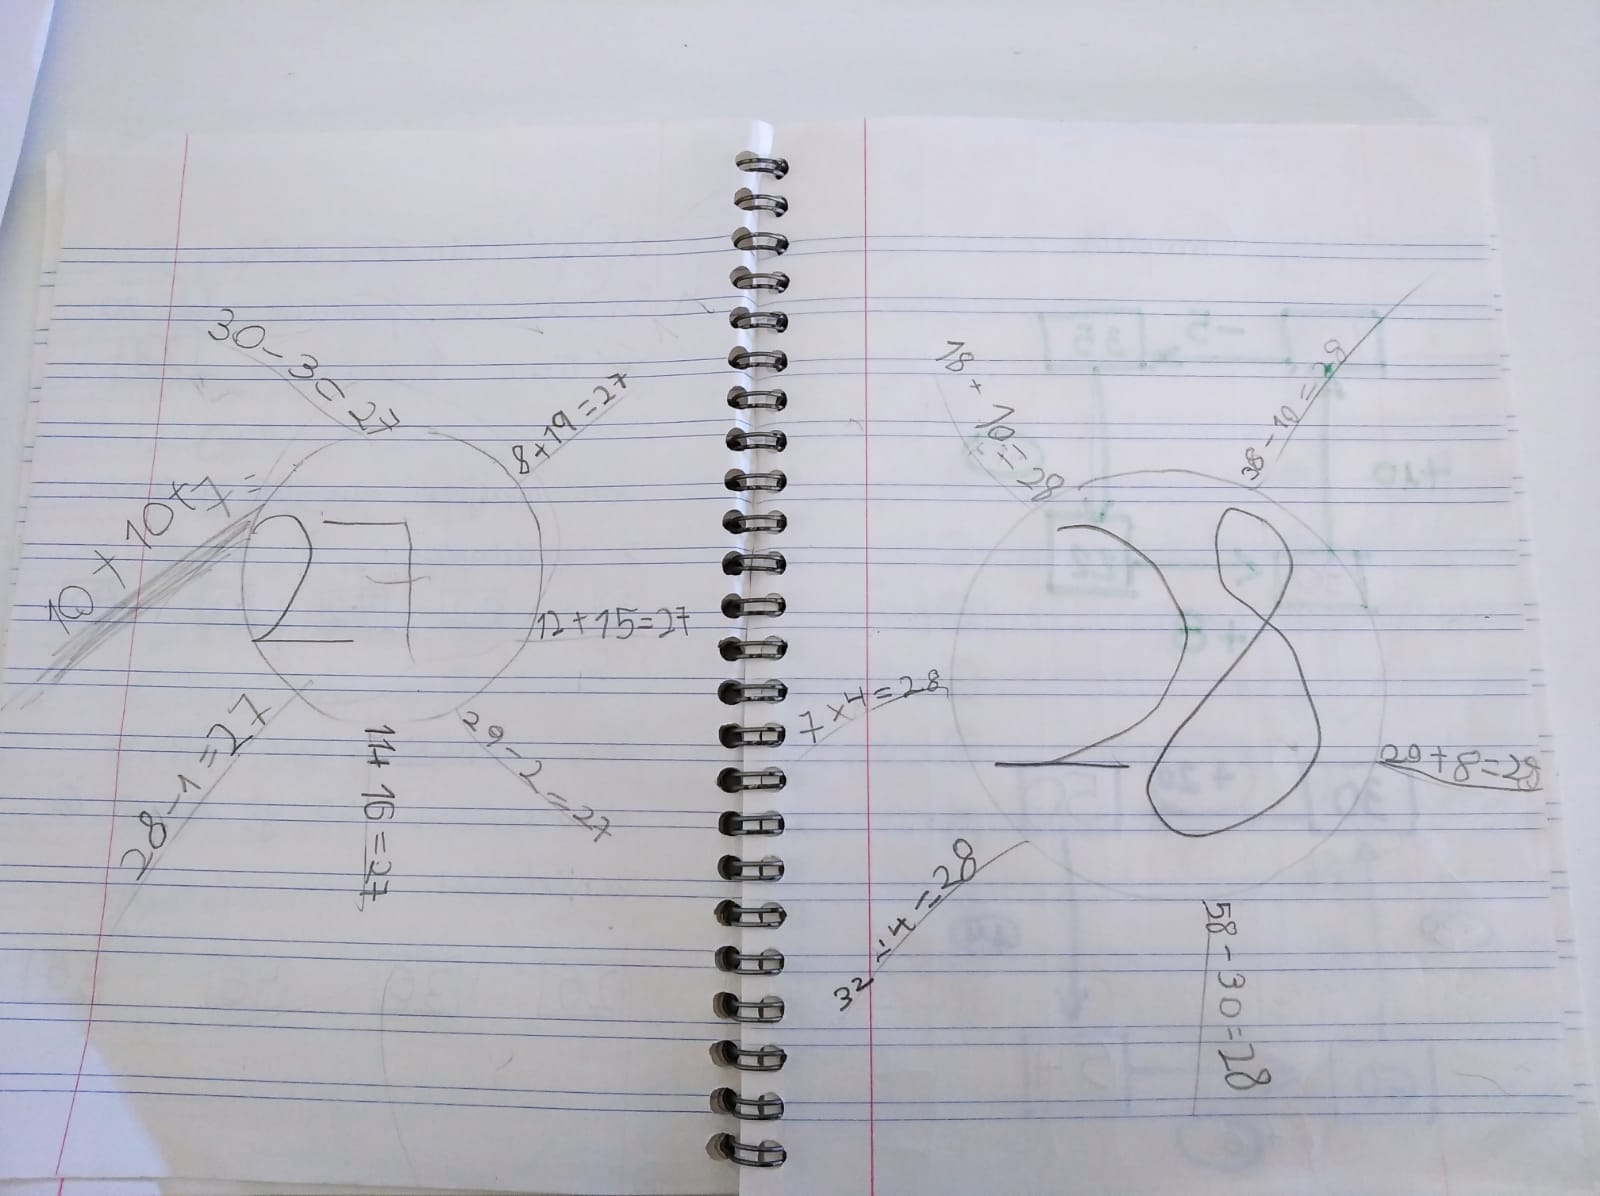 30-3=27
8+19=27
10+10+7=
27
12+15=27
28-1=27
11+16=27
29-2=27
18+10=28
38-10=28
28
7x4=28
20+8=28
32-4=28
58-30=28